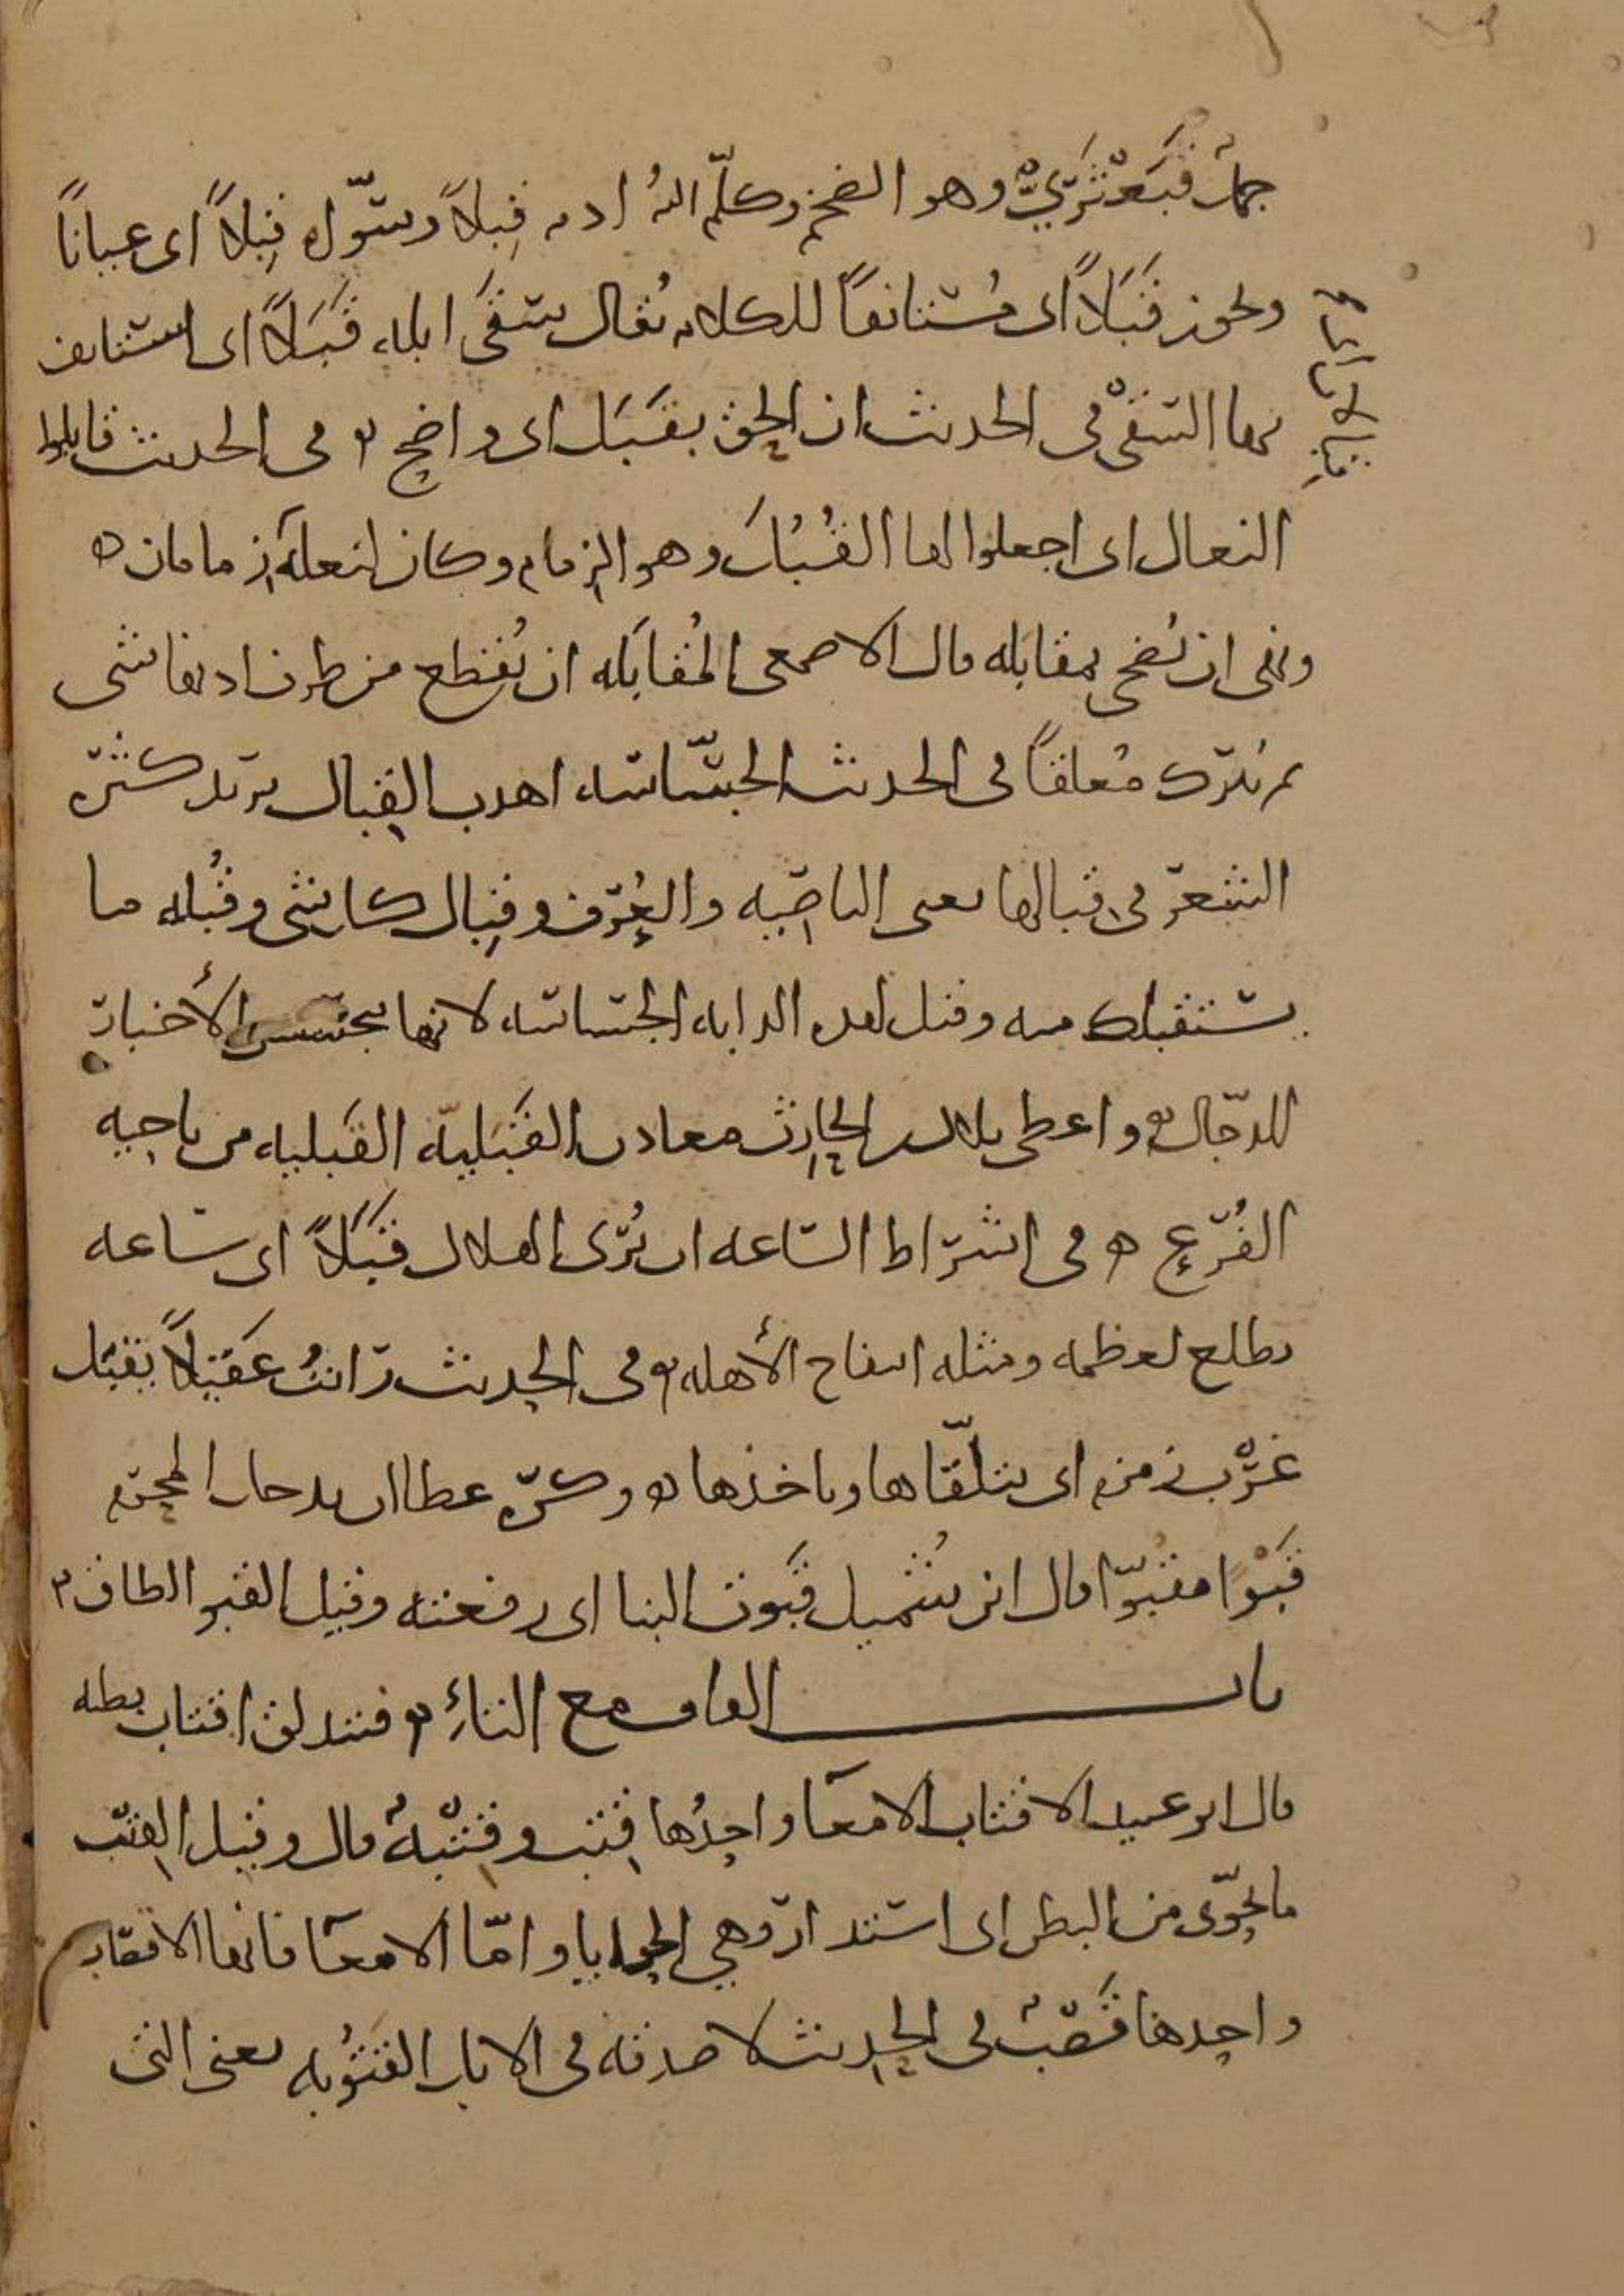 جمل قَبَعْثَرِيٌّ وهو الضخم وكلّم اللهُ ادم قِبلاً وسوّاه قِبلاً اى عياناً
ويجوز قَبَلاً اى مُستانفاً للكلام يُقال سقَى ابله قَبَلاً اى استانف
بها السقْى فى الحديث ان الحق بقَبَل اى واضح ه فى الحديث قابلوا
النعال اى اجعلوا لها القُبُل وهو الزمام وكان لنعله زمامان ه
ونهى ان يُضحى بمقابله قال الاصمعى المُقابَله ان يُقطع من طرف اذنها شى
ثم يُترك مُعلقاً فى الحديث الجسّاسه اهدب القبال يريد كثره
الشعر فى قبالها يعنى الناصيه والعُرف وقِبال كل شى وقُبله ما
يستقبلك منه وقيل لهذه الدابه الجساسه لانها تجسس الأخبار
للدجّال ه واعطى بلال بن الحارث معادن القَبَليّه القَبليه من ناحيه
الفُرع ه فى اشراط الساعه ان يُرى الهلال قَبَلاً اى ساعه
يطلع لعظمه ومثله انتفاخ الأهله ه فى الحديث رايتُ عَقيلاً يقبَل
غَرْب زمزم اى يتلقّاها وياخذها ه وكره عطا ان يدخل المحرم
قَبْوا مقبُوّا قال ابن شُميل قَبَوت البنا اى رفعته وقيل القبو الطاق
باب القاف مع التاءِ ه فتندلق اقتاب بطنه
قال ابو عبيد الاقتاب الامعا واحِدُها قِتب وقِتْبهٌ قال وقيل القِتْب
ما تحوّى من البطن اى استدار وهي الحوايا وامّا الامعا فانها الاقصاب
واحدها قَصَبٌ فى الحديث لا صدقه فى الابل القتُوبه يعنى التى